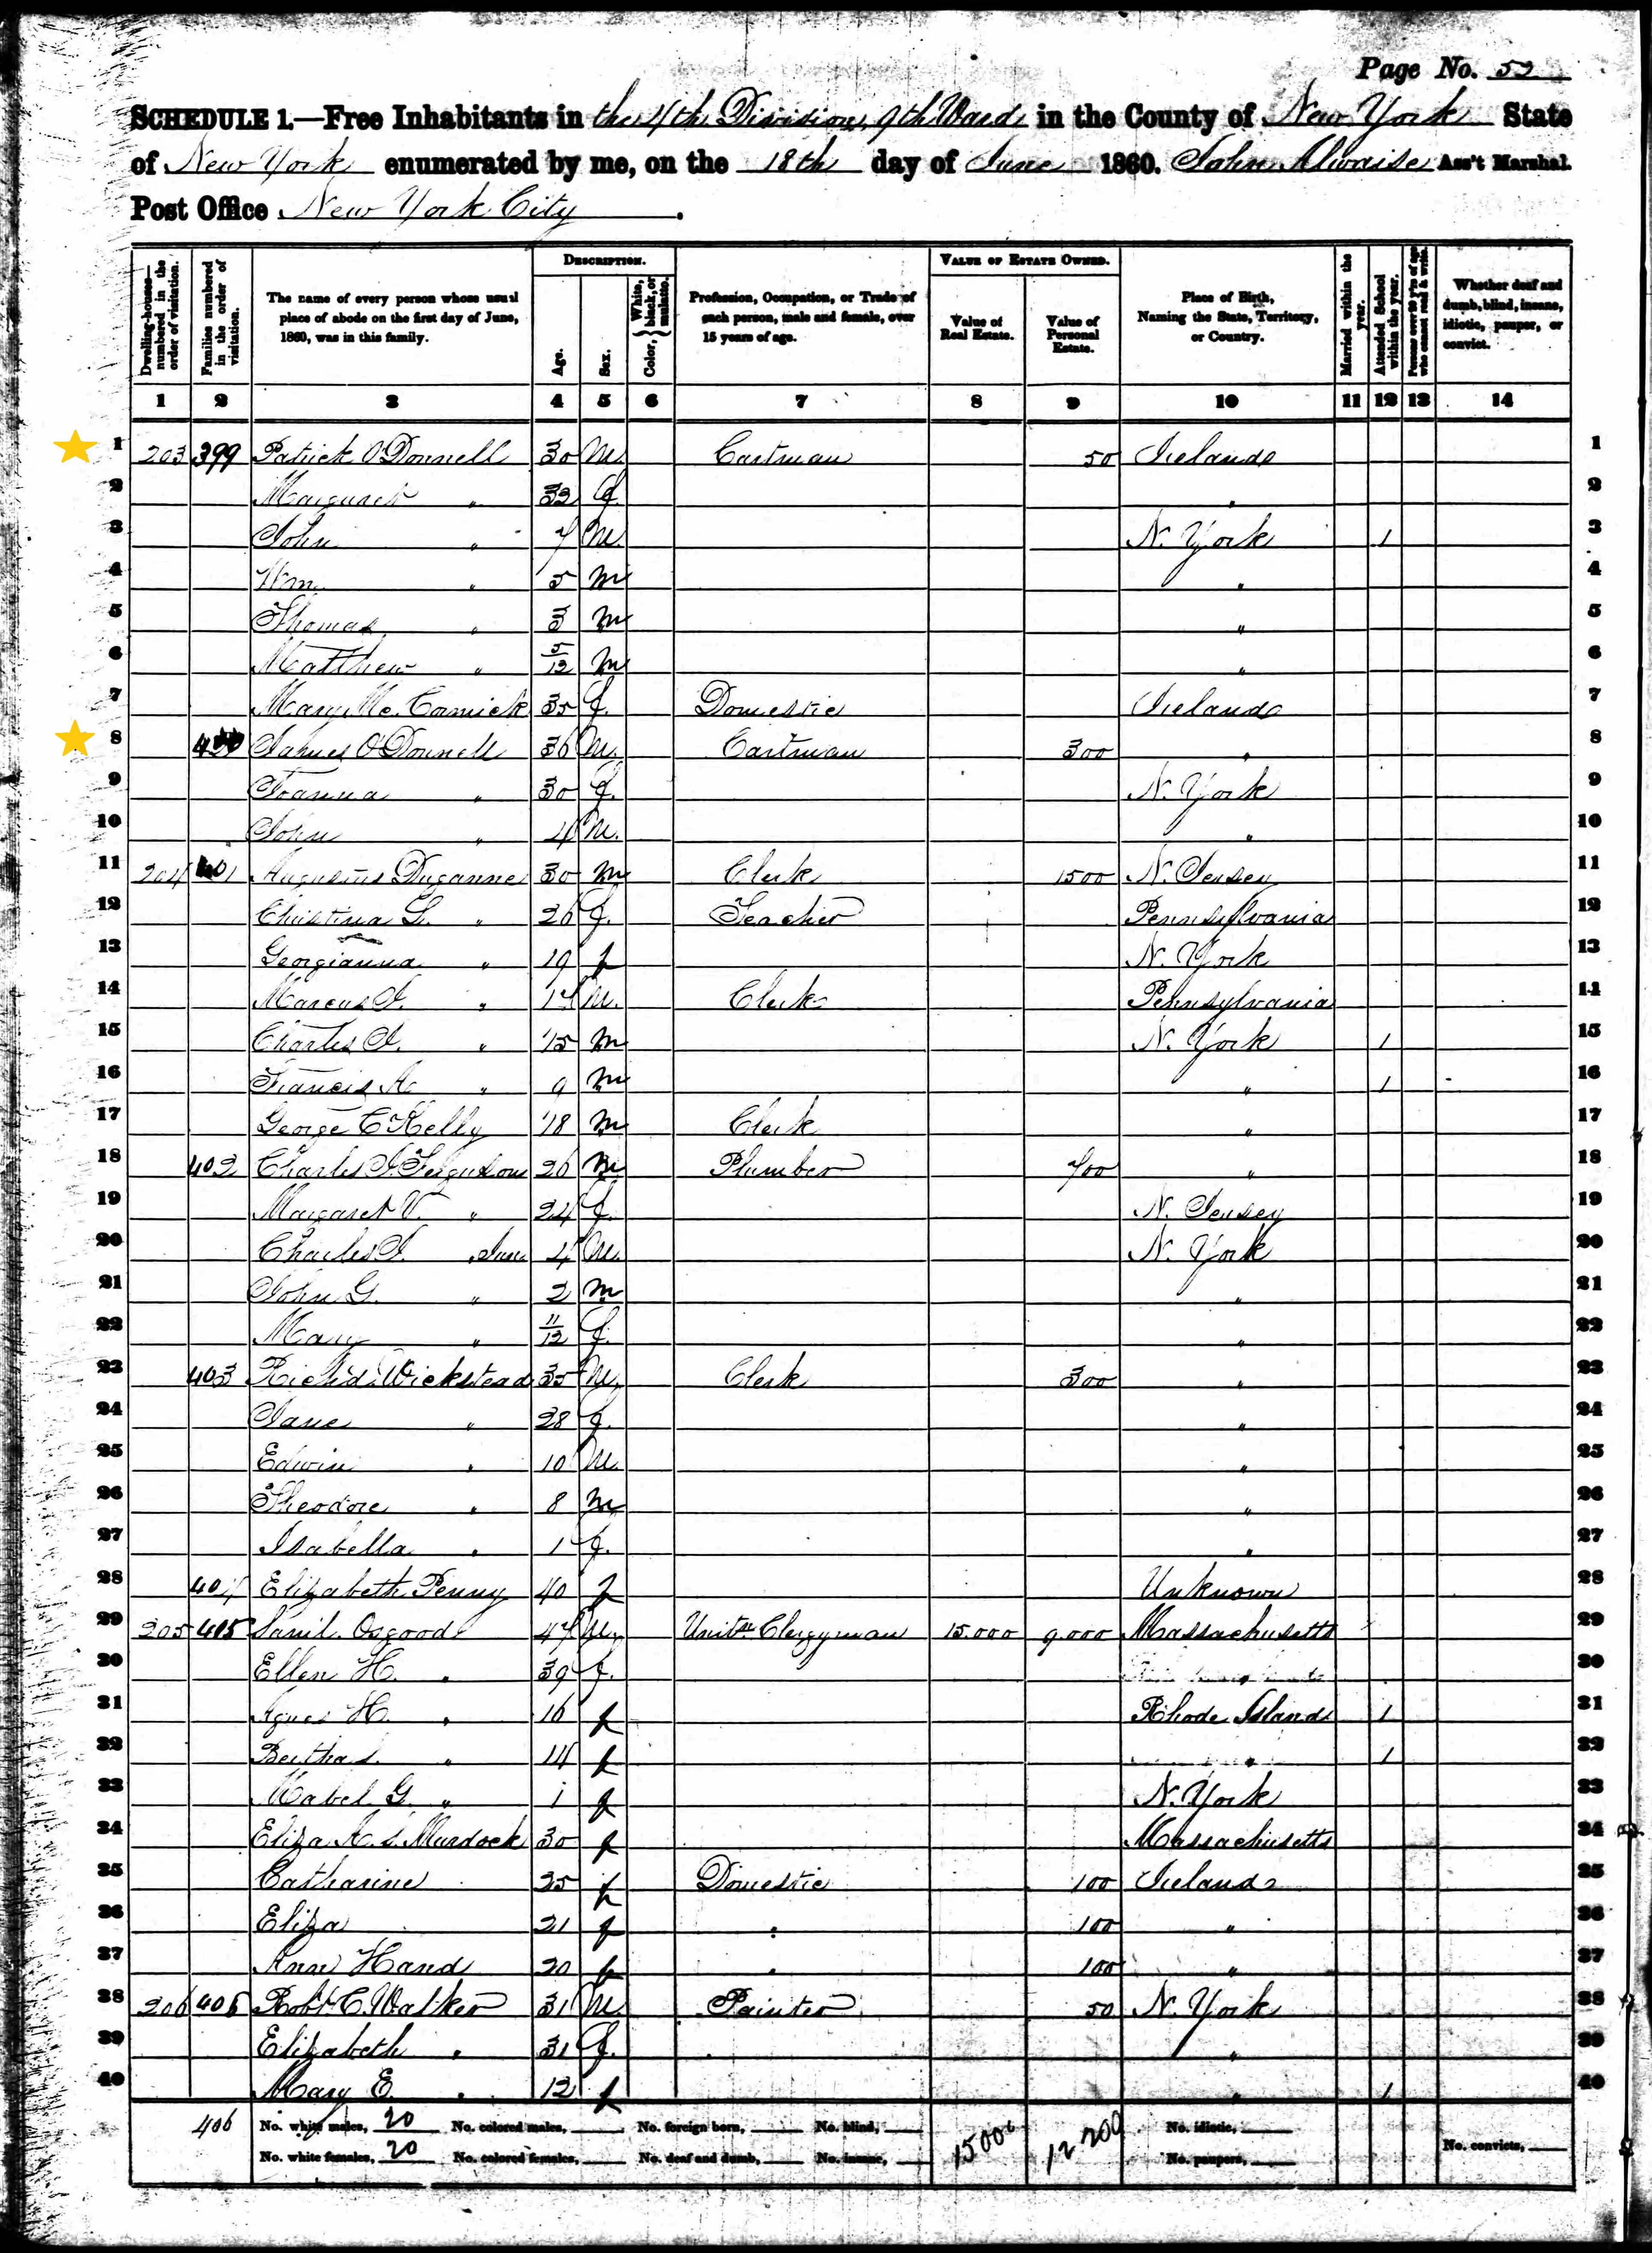 Page No. 52
SCHEDULE 1.—Free Inhabitants in the 4th Division 9th Ward in the County of New York State
of New York enumerated by me, on the 18th day of June 1860. John Alwaise Ass't Marshal.
Post Office New York City.
Dwelling-houses—numbered in the order of visitation.
Families numbered in the order of visitation.
The name of every person whose usual place of abode on the first day of June, 1860, was in this family.
DESCRIPTION.
Age.
Sex.
Color, { White, black, or mulatto.
Profession, Occupation, or Trade of each person, male and female, over 15 years of age.
VALUE OF ESTATE OWNED.
Value of Real Estate.
Value of Personal Estate.
Place of Birth, Naming the State, Territory, or Country.
Married within the year.
Attended School within the year.
Persons over 20 y'rs of age who cannot read & write.
Whether deaf and dumb, blind, insane, idiotic, pauper, or convict.
1 2 3 4 5 6 7 8 9 10 11 12 13 14
1 203 399 Patrick O'Donnell 30 M. Cartman 50 Ireland 1
2 Margaret " 32 f. " 2
3 John " 7 M. N. York 1 3
4 Wm. " 5 m " 4
5 Thomas " 3 m " 5
6 Matthew " 5/12 m " 6
7 Mary Mc.Cormick 35 f. Domestic Ireland 7
8 400 James O'Donnell 36 M. Cartman 300 " 8
9 Joanna " 30 f. N. York 9
10 John " 4 M. " 10
11 204 401 Augustus Duganne 30 m Clerk 1500 N. Jersey 11
12 Christina L. " 26 f. Teacher Pennsylvania 12
13 Georgianna " 19 f N. York 13
14 Marcus J. " 17 M. Clerk Pennsylvania 14
15 Charles J. " 15 m N. York 1 15
16 Francis A. " 9 m " 1 16
17 George E Kelly 18 m Clerk " 17
18 402 Charles J. Fergusson 26 m Plumber 700 " 18
19 Margaret V. " 24 f. N. Jersey 19
20 Charles J. " Jun 4 M. N. York 20
21 John G. " 2 m " 21
22 Mary " 11/12 f. " 22
23 403 Rich'd. Wickstead 35 M. Clerk 300 " 23
24 Jane " 28 f. " 24
25 Edwin " 10 M. " 25
26 Theodore " 8 m " 26
27 Isabella " 1 f. " 27
28 404 Elizabeth Penny 40 f Unknown 28
29 205 405 Saml. Osgood 47 M. Unitn Clergyman 15.000 9.000 Massachusetts 29
30 Ellen H. " 39 f. " 30
31 Agnes H. " 16 f Rhode Island 1 31
32 Bertha S. " 14 f " 1 32
33 Mabel G. " 1 f N. York 33
34 Eliza A. S. Murdock 30 f Massachusetts 34
35 Catharine 25 f Domestic 100 Ireland 35
36 Eliza 21 f " 100 " 36
37 Ann Hand 20 f " 100 " 37
38 206 406 Robt. C. Walker 31 M. Painter 50 N. York 38
39 Elizabeth " 31 f. " 39
40 Mary E. " 12 f " 1 40
406 No. white males, 20 No. colored males, No. foreign born, No. blind, 15000 12200 No. idiotic,
No. white females, 20 No. colored females, No. deaf and dumb, No. insane, No. paupers, No. convicts,